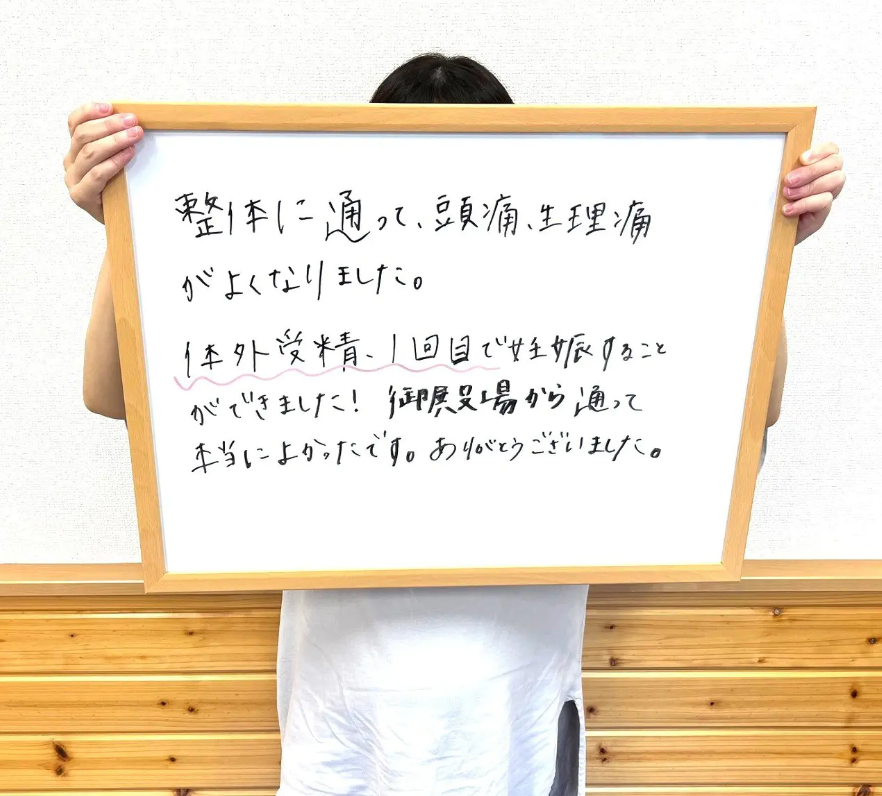 整体に通って、頭痛、生理痛
がよくなりました。
体外受精、1回目で妊娠すること
ができました! から通って
本当によかったです。ありがとうございました。